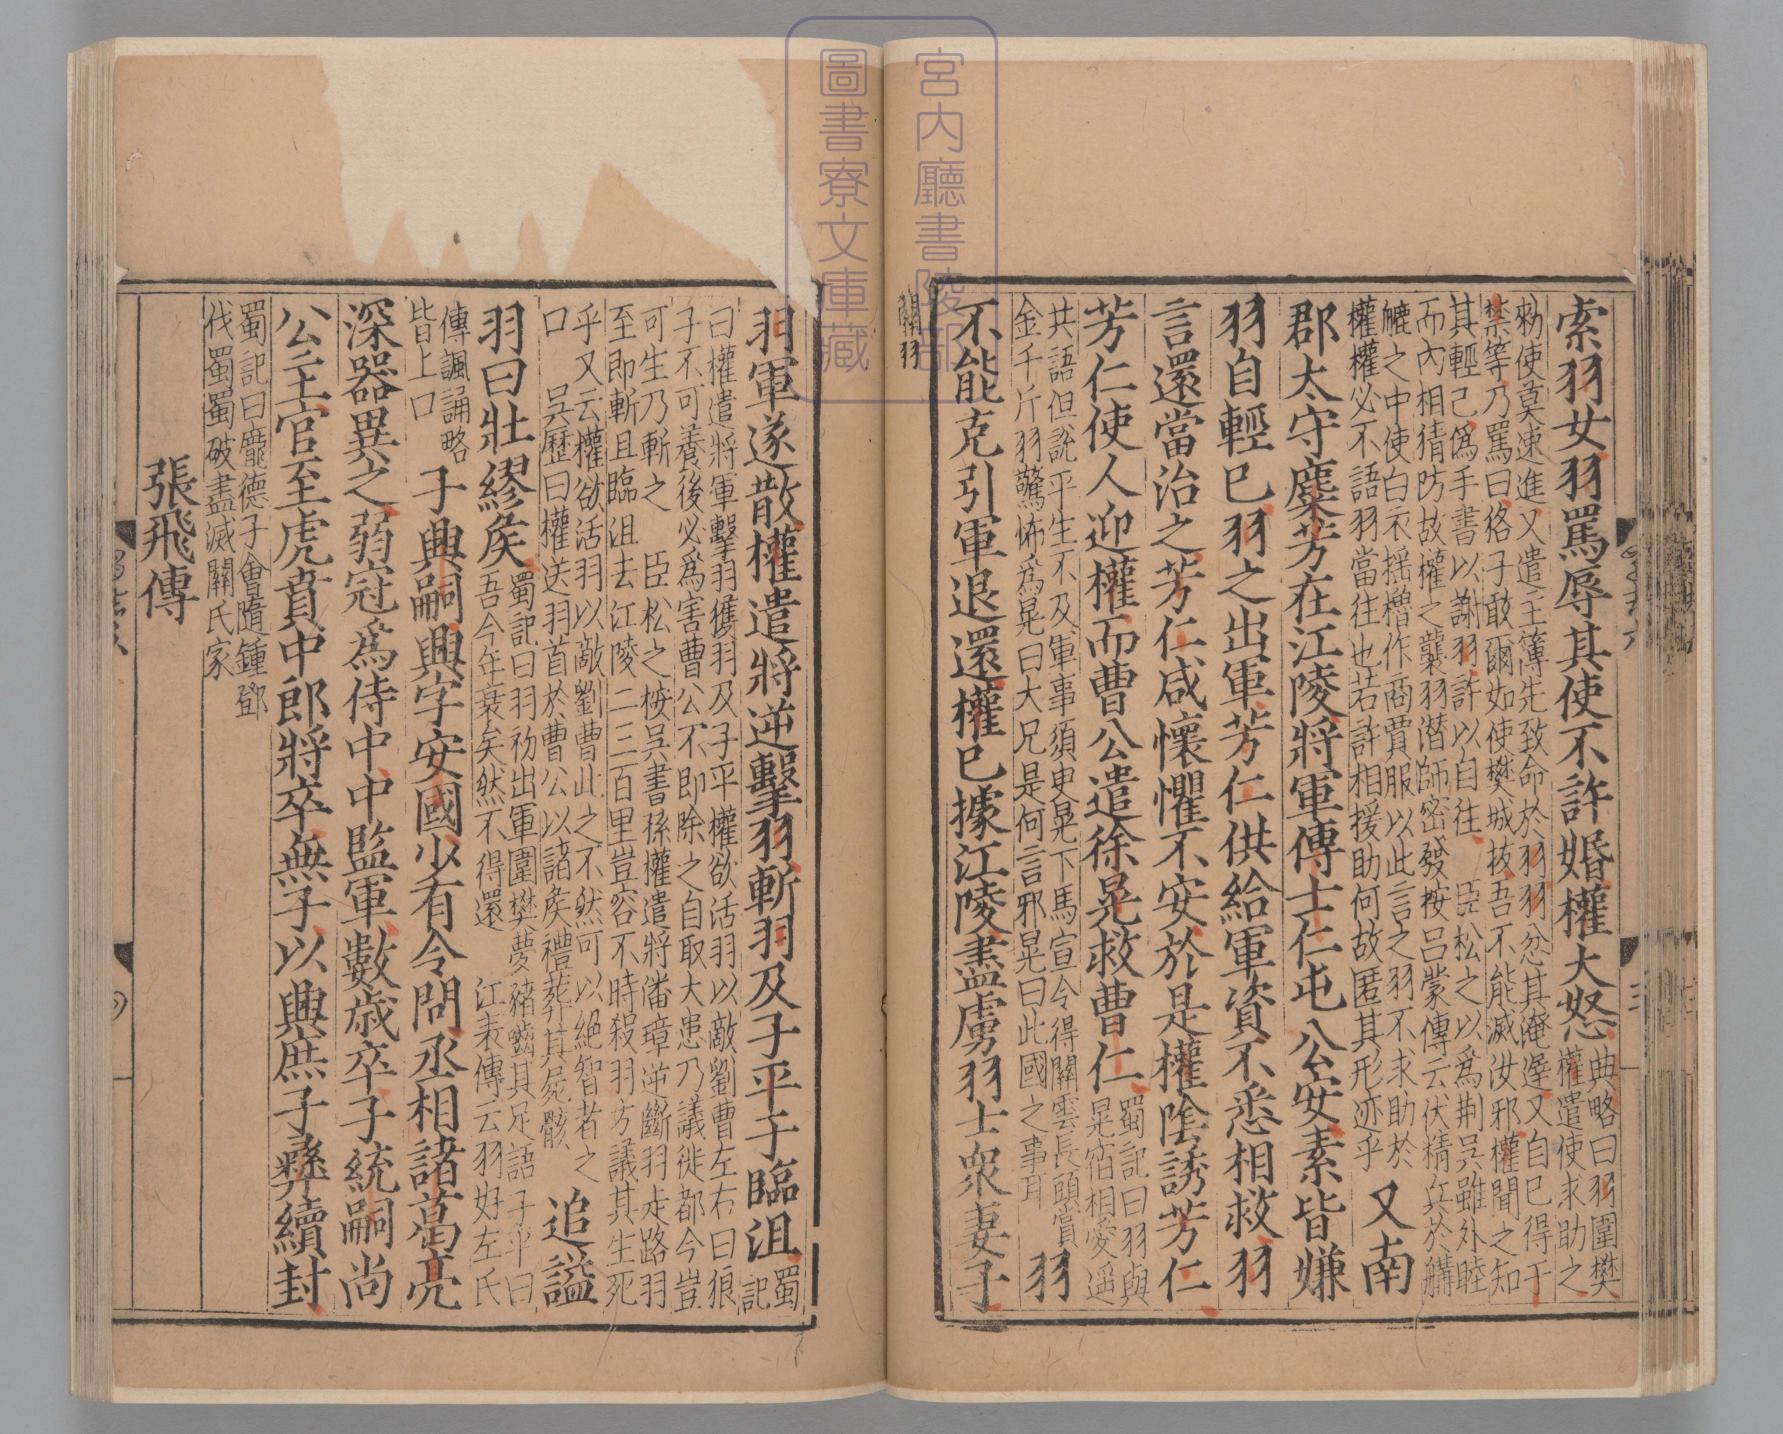 索羽女羽罵辱其使不許婚權大怒
典略曰羽圍樊
權遣使求助之
勑使莫速進又遣主簿先致命於羽羽忿其淹遟又自已得于
禁等乃罵曰狢子敢爾如使樊城拔吾不能滅汝邪權聞之知
其輕己偽手書以謝羽許以自往 臣松之以為荆吳雖外睦
而內相猜防故權之襲羽潛師密發按呂蒙傳云伏精兵於䑽
䑼之中使白衣揺櫓作商賈服以此言之羽不求助於
權權必不語羽當往也若許相援助何故匿其形迹乎
又南
郡太守麋芳在江陵將軍傅士仁屯公安素皆嫌
羽自輕已羽之出軍芳仁供給軍資不悉相救羽
言還當治之芳仁咸懷懼不安於是權陰誘芳仁
芳仁使人迎權而曹公遣徐晃救曹仁
蜀記曰羽與
晃宿相愛遥
共語但説平生不及軍事須臾晃下馬宣令得關雲長頭賞
金千斤羽驚怖為晃曰大兄是何言邪晃曰此國之事耳
羽
不能克引軍退還權已據江陵盡虜羽士衆妻子
關羽
羽軍遂散權遣將逆擊羽斬羽及子平于臨沮
蜀
記
曰權遣將軍擊羽獲羽及子平權欲活羽以敵劉曹左右曰狼
子不可養後必為害曹公不即除之自取大患乃議徙都今豈
可生乃斬之 臣松之桉吳書孫權遣將潘璋逆斷羽走路羽
至即斬且臨沮去江陵二三百里豈容不時殺羽方議其生死
乎又云權欲活羽以敵劉曹此之不然可以絕智者之
口 吳歷曰權送羽首於曹公以諸矦禮葬其屍骸
追謚
羽曰壯繆矦
蜀記曰羽初出軍圍樊夢豬齧其足語子平曰
吾今年衰矣然不得還 江表傳云羽好左氏
傳諷誦略
皆上口
子興嗣興字安國少有令問丞相諸葛亮
深器異之弱冠為侍中中監軍數歳卒子統嗣尚
公主官至虎賁中郎將卒無子以興庶子彝續封
蜀記曰龐德子會隨鍾鄧
伐蜀蜀破盡滅關氏家
張飛傳
宮内廳書陵部
圖書寮文庫藏